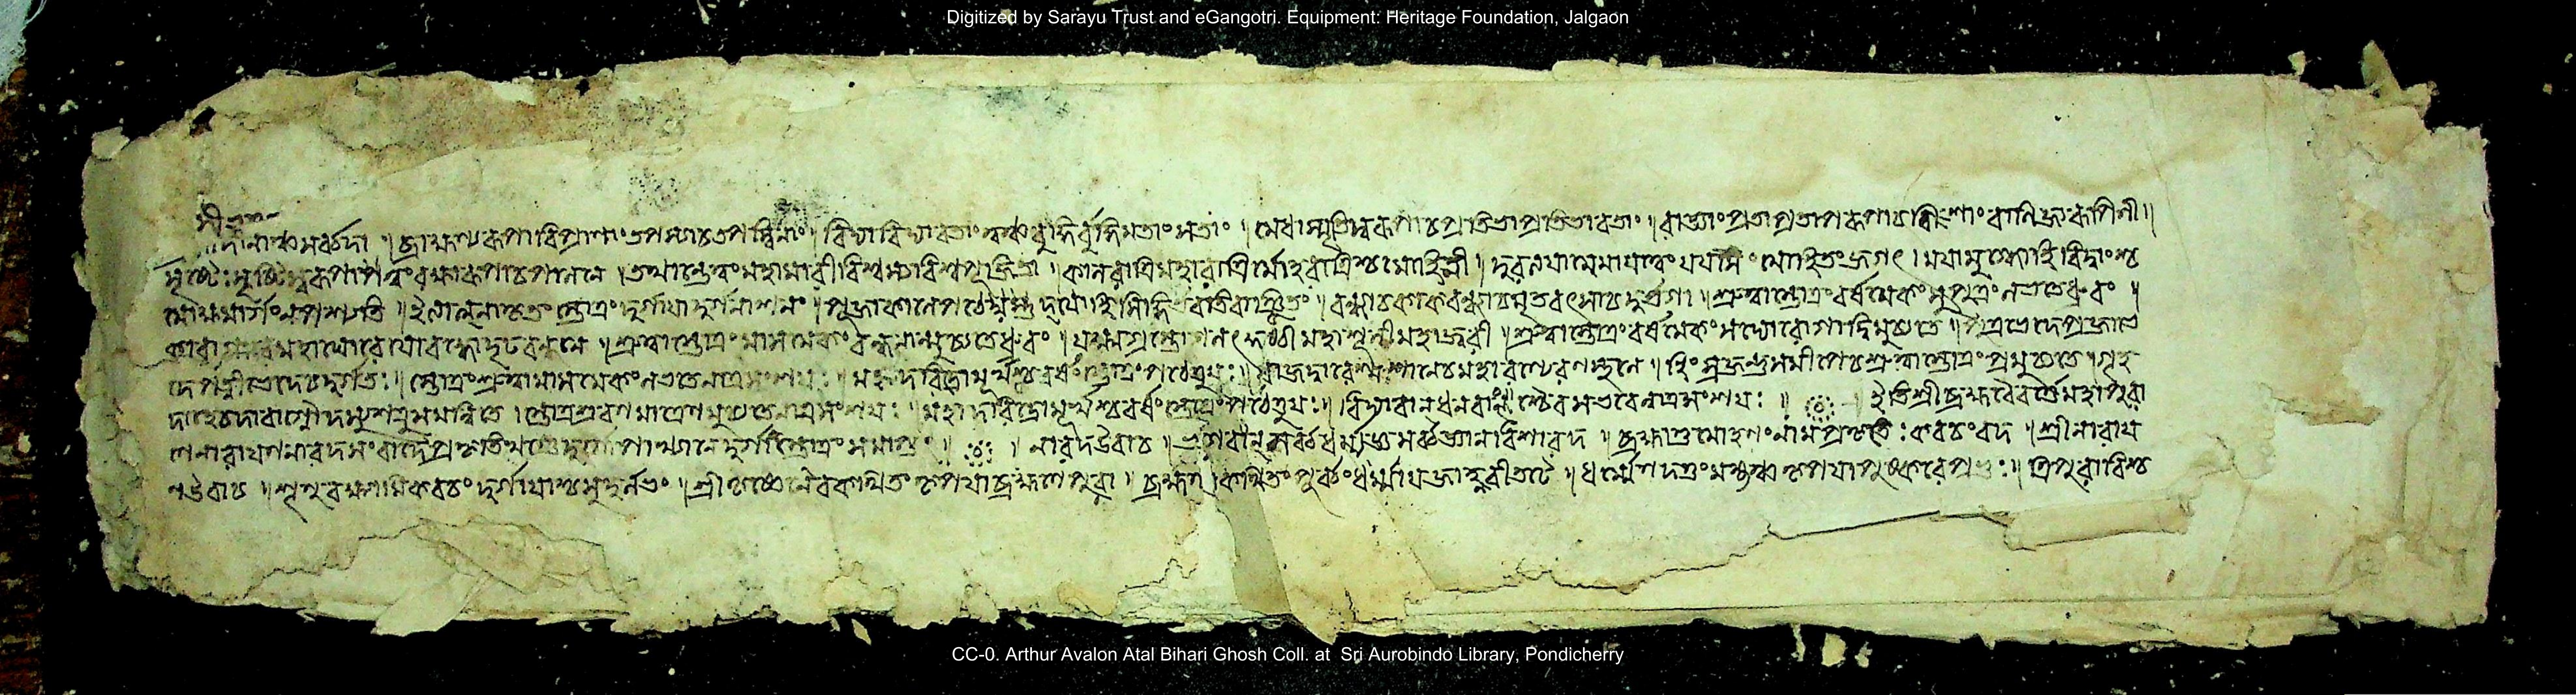 Digitized by Sarayu Trust and eGangotri. Equipment: Heritage Foundation, Jalgaon
সর্ব্বদা ॥ ব্রাহ্মণ্যরূপা বিপ্রাণাং তপস্যা চ তপস্বিনাং ॥ বিদ্যা বিদ্যাবতাং ত্বঞ্চ বুদ্ধির্বুদ্ধিমতাং সতাং ॥ মেধাস্মৃতিস্বরূপা চ প্রতিভা প্রতিভাবতাং ॥ রাজ্ঞাং প্রতাপরূপা চ বিশাং বাণিজ্যরূপিণী ॥
সৃষ্টৌ সৃষ্টিস্বরূপা ত্বং রক্ষারূপা চ পালনে । তথান্তে ত্বং মহামারী বিশ্বস্য বিশ্বপূজিতা । কালরাত্রির্মহারাত্রির্মোহরাত্রিশ্চ মোহিনী ॥ দুরত্যয়া মে মায়া ত্বং যয়া মোহিতং জগৎ । যয়া মুগ্ধো হি বিদ্বাংশ্চ
মোক্ষমার্গং ন পশ্যতি ॥ ইত্যাত্মনা কৃতং স্তোত্রং দুর্গায়া দুর্গনাশনং । পূজাকালে পঠেদ্যস্তু সিদ্ধির্ভবতি বাঞ্ছিতং ॥ বন্ধ্যা চ কাকবন্ধ্যা চ মৃতবৎসা চ দুর্ভগা । শ্রুত্বা স্তোত্রং বর্ষমেকং সুপুত্রং লভতে ধ্রুবং ॥
কারাগারে মহাঘোরে যো বদ্ধো দৃঢ়বন্ধনে । শ্রুত্বা স্তোত্রং মাসমেকং বন্ধনান্মুচ্যতে ধ্রুবং ॥ যক্ষ্মগ্রস্তো গলৎকুষ্ঠী মহাশূলী মহাজ্বরী । শ্রুত্বা স্তোত্রং বর্ষমেকং সদ্যো রোগাদ্বিমুচ্যতে ॥ পুত্রভেদে প্রজাভে
দে পত্নীভেদে চ দুর্গতঃ । স্তোত্রং শ্রুত্বা মাসমেকং লভতে নাত্র সংশয়ঃ ॥ রাজদ্বারে শ্মশানে চ মহারণ্যে রণস্থলে । হিংস্রজন্তুসমীপে চ শ্রুত্বা স্তোত্রং প্রমুচ্যতে । গৃহ
দাহে চ দাবাগ্নৌ দস্যুশত্রুসমন্বিতে । স্তোত্রশ্রবণমাত্রেণ মুচ্যতে নাত্র সংশয়ঃ ॥ মহাদরিদ্রো মূর্খশ্চ বর্ষং স্তোত্রং পঠেত্তু যঃ ॥ বিদ্যাবান্ ধনবাংশ্চৈব স ভবেন্নাত্র সংশয়ঃ ॥ ইতি শ্রীব্রহ্মবৈবর্ত্তে মহাপুরা
ণে নারায়ণনারদসংবাদে প্রকৃতিখণ্ডে দুর্গোপাখ্যানে দুর্গাস্তোত্রং সমাপ্তং ॥ নারদ উবাচ ॥ ভগবন্ সর্ব্বধর্ম্মজ্ঞ সর্ব্বজ্ঞানবিশারদ ॥ ব্রহ্মাণ্ডমোহনং নাম প্রকৃতেঃ কবচং বদ ॥ শ্রীনারায়
ণ উবাচ ॥ শৃণু বক্ষ্যামি কবচং দুর্গায়াশ্চ সুদুর্লভং । শ্রীকৃষ্ণেনৈব কথিতং কৃপয়া ব্রহ্মণে পুরা । ব্রহ্মণা কথিতং পূর্ব্বং ধর্ম্মায় জাহ্নবীতটে ॥ ধর্ম্মেণ দত্তং মহ্যঞ্চ কৃপয়া পুষ্করে প্রভুঃ ॥ ত্রিপুরারিশ্চ
CC-0. Arthur Avalon Atal Bihari Ghosh Coll. at Sri Aurobindo Library, Pondicherry